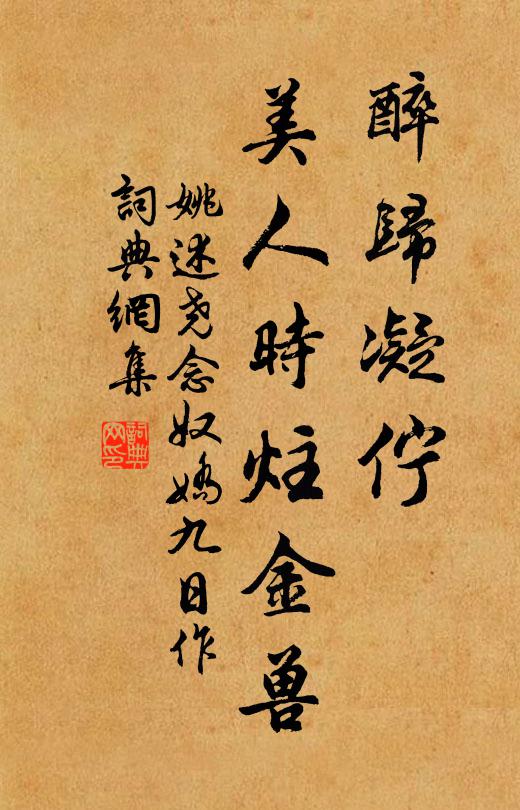 醉歸凝佇
美人時炷金兽
姚述尧念奴嬌九日作
詞典網集
詞典網印